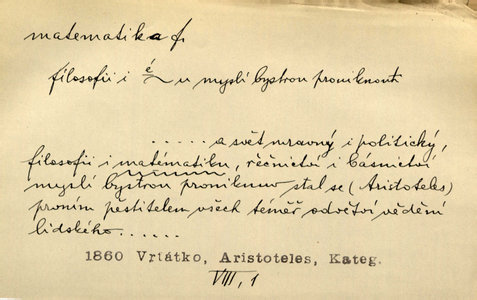 matematika f.
filosofii i é~u myslí bystrou proniknouti
......a svět mravný i politický,
filosofii i matématiku, řečnictví i básnictví
myslí bystrou proniknuv stal se (Aristoteles)
prvním pěstitelem všech téměř odvětví vědění
lidského......
1860 Vrťátko, Aristoteles, Kateg.
VIII, 1